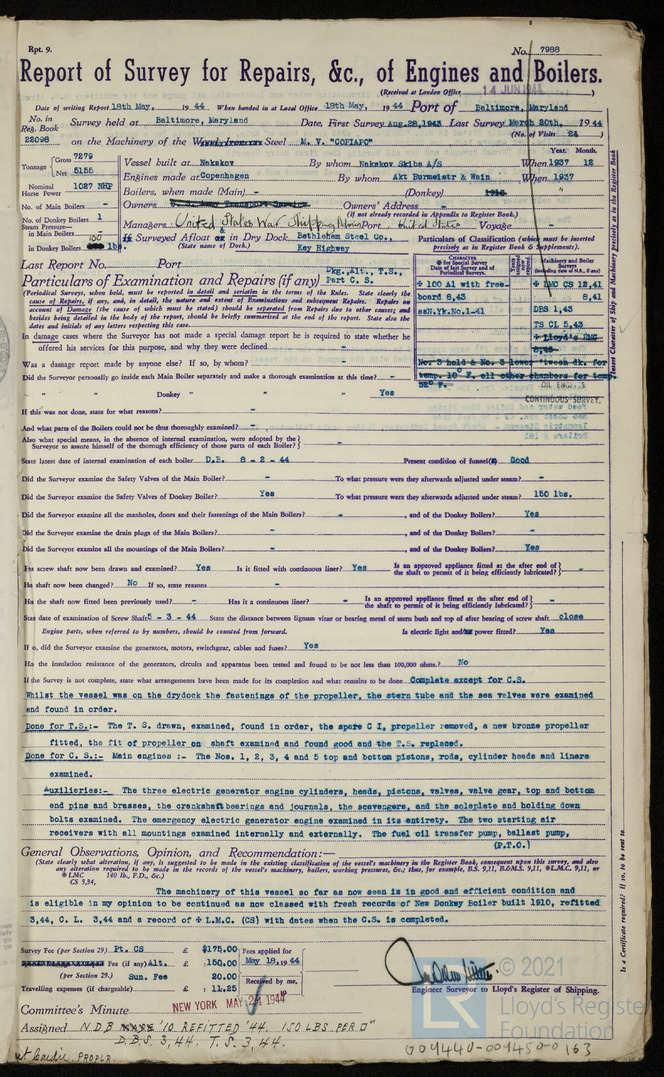 Rpt. 9.
No. 7988
Report of Survey for Repairs, &c., of Engines and Boilers.
(Received at London Office 14 JUN 1944 )
Date of writing Report 18th May, 19 44 When handed in at Local Office 18th May, 19 44 Port of Baltimore, Maryland
No. in Reg. Book 22098
Survey held at Baltimore, Maryland Date, First Survey Aug. 28, 1943 Last Survey March 20th, 19 44
(No. of Visits 24
on the Machinery of the Steel M. V. "COPIAPO"
Tonnage Gross 7279 Net 5155
Vessel built at Nakskov By whom Nakskov Skibs A/S When 1937 12
Year. Month.
Engines made at Copenhagen By whom Akt Burmeister & Wein When 1937
Nominal Horse Power 1027 NHP
Boilers, when made (Main) - (Donkey)
No. of Main Boilers -
Owners Owners' Address -
(if not already recorded in Appendix to Register Book)
No. of Donkey Boilers 1
Managers United States War Shipping Port United States Voyage -
Steam Pressure—
in Main Boilers -
in Donkey Boilers 150 lbs.
If Surveyed Afloat & in Dry Dock Bethlehem Steel Co.,
(State name of Dock.) Key Highway
Particulars of Classification (which must be inserted precisely as in Register Book & Supplement).
Last Report No. Port
Particulars of Examination and Repairs (if any) Dkg., Alt., T.S., Part C. S.
(Periodical Surveys, when held, must be reported in detail and seriatim in the terms of the Rules. State clearly the
cause of Repairs, if any, and, in detail, the nature and extent of Examinations and subsequent Repairs. Repairs on
account of Damage (the cause of which must be stated) should be separated from Repairs due to other causes; and
besides being detailed in the body of the report, should be briefly summarised at the end of the report. State also the
dates and initials of any letters respecting this case.
CHARACTER
Machinery and Boiler Surveys
+ 100 A1 with free-
board 8,43
ssN.Yk.No.1-41
+ LMC CS 12,41
8,41
DBS 1,43
TS CL 5,43
+ Lloyd's RMC
8,43
No. 3 hold & No. 3 lower 'tween dk. for
temp. 10° F. all other chambers for temp.
32° F.
OIL ENGINES
CONTINUOUS SURVEY.
In damage cases where the Surveyor has not made a special damage report he is required to state whether he
offered his services for this purpose, and why they were declined -
Was a damage report made by anyone else? If so, by whom? -
Did the Surveyor personally go inside each Main Boiler separately and make a thorough examination at this time? -
" " Donkey " " " Yes
If this was not done, state for what reasons? -
And what parts of the Boilers could not be thus thoroughly examined? -
Also what special means, in the absence of internal examination, were adopted by the
Surveyor to assure himself of the thorough efficiency of those parts of each Boiler? -
State latest date of internal examination of each boiler D.B. 8 - 2 - 44 Present condition of funnel(s) Good
Did the Surveyor examine the Safety Valves of the Main Boiler? - To what pressure were they afterwards adjusted under steam? -
Did the Surveyor examine the Safety Valves of Donkey Boiler? Yes To what pressure were they afterwards adjusted under steam? 150 lbs.
Did the Surveyor examine all the manholes, doors and their fastenings of the Main Boilers? - , and of the Donkey Boilers? Yes
Did the Surveyor examine the drain plugs of the Main Boilers? - , and of the Donkey Boilers? -
Did the Surveyor examine all the mountings of the Main Boilers? - , and of the Donkey Boilers? Yes
Has screw shaft now been drawn and examined? Yes Is it fitted with continuous liner? Yes Is an approved appliance fitted at the after end of the shaft to permit of it being efficiently lubricated? -
Has shaft now been changed? No If so, state reasons -
Has the shaft now fitted been previously used? - Has it a continuous liner? - Is an approved appliance fitted at the after end of the shaft to permit of it being efficiently lubricated? -
State date of examination of Screw Shaft 5 - 3 - 44 State the distance between lignum vitæ or bearing metal of stern bush and top of after bearing of screw shaft close
Engine parts, when referred to by numbers, should be counted from forward. Is electric light and/or power fitted? Yes
If so, did the Surveyor examine the generators, motors, switchgear, cables and fuses? Yes
Has the insulation resistance of the generators, circuits and apparatus been tested and found to be not less than 100,000 ohms.? No
If the Survey is not complete, state what arrangements have been made for its completion and what remains to be done Complete except for C.S.
Whilst the vessel was on the drydock the fastenings of the propeller, the stern tube and the sea valves were examined
and found in order.
Done for T.S.:- The T. S. drawn, examined, found in order, the spare C I, propeller removed, a new bronze propeller
fitted, the fit of propeller on shaft examined and found good and the T.S. replaced.
Done for C. S.:- Main engines :- The Nos. 1, 2, 3, 4 and 5 top and bottom pistons, rods, cylinder heads and liners
examined.
Auxiliaries:- The three electric generator engine cylinders, heads, pistons, valves, valve gear, top and bottom
end pins and brasses, the crankshaft bearings and journals, the scavengers, and the soleplate and holding down
bolts examined. The emergency electric generator engine examined in its entirety. The two starting air
receivers with all mountings examined internally and externally. The fuel oil transfer pump, ballast pump,
(P.T.O.)
General Observations, Opinion, and Recommendation:—
(State clearly what alteration, if any, is suggested to be made in the existing classification of the vessel's machinery in the Register Book, consequent upon this survey, and also
any alteration required to be made in the records of the vessel's machinery, boilers, working pressures, &c.; thus, for example, B.S. 9,11, B.&M.S. 9,11, +L.M.C. 9,11, or
+ LMC 140 lb., F.D., &c.)
CS 3,34,
The machinery of this vessel so far as now seen is in good and efficient condition and
is eligible in my opinion to be continued as now classed with fresh records of New Donkey Boiler built 1910, refitted
3,44, C. L. 3,44 and a record of + L.M.C. (CS) with dates when the C.S. is completed.
Survey Fee (per Section 29) Pt. CS £ $175.00
Fee (if any) Alt. £ 150.00
(per Section 29.) Sun. Fee 20.00
Travelling expenses (if chargeable) £ : 11.25
Fees applied for May 18, 19 44
Received by me, 19
Engineer Surveyor to Lloyd's Register of Shipping.
Committee's Minute NEW YORK MAY 24 1944
Assigned N.D.B. '10 REFITTED '44. 150 LBS PER □"
D.B.S. 3,44. T.S. 3,44.
PROPLR.
G09440-009450-0163
© 2021
Lloyd's Register
Foundation
LR
Is a Certificate required? If so, to be sent to